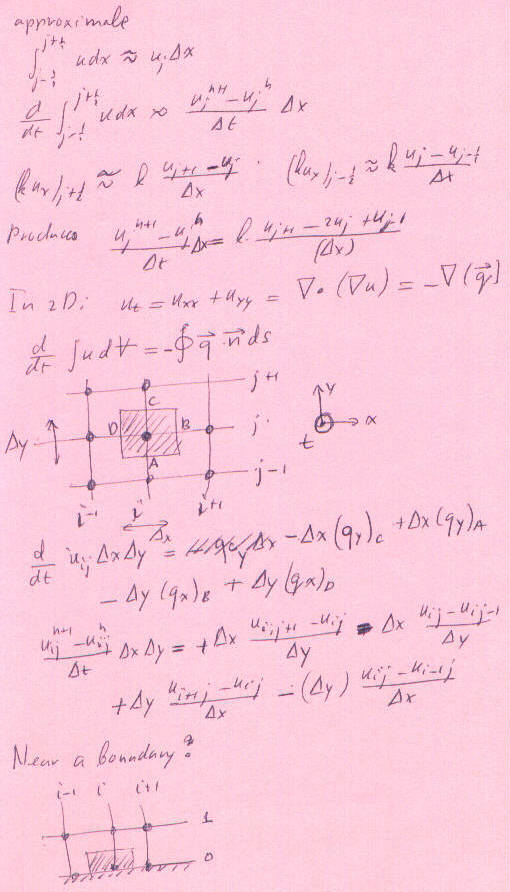 approximate
∫_{j-½}^{j+½} u dx ≈ u_j Δx
d/dt ∫_{j-½}^{j+½} u dx ≈ (u_j^{n+1} - u_j^n)/Δt Δx
(k u_x)_{j+½} ≈ k (u_{j+1} - u_j)/Δx . (k u_x)_{j-½} ≈ k (u_j - u_{j-1})/Δx
Produces (u_j^{n+1} - u_j^n)/Δt Δx = k (u_{j+1} - 2u_j + u_{j-1})/(Δx)
In 2D: u_t = u_{xx} + u_{xy} = ∇•(∇u) = -∇(q⃗)
d/dt ∫ u dV = -∮ q⃗ . n⃗ ds
j+1
C
y
D B j
x
Δy
t
A
j-1
i-1 i i+1
Δx
d/dt u_{ij} Δx Δy = -Δx (q_y)_C + Δx (q_y)_A
- Δy (q_x)_B + Δy (q_x)_D
(u_{ij}^{n+1} - u_{ij}^n)/Δt Δx Δy = + Δx (u_{i,j+1} - u_{ij})/Δy - Δx (u_{ij} - u_{ij-1})/Δy
+ Δy (u_{i+1j} - u_{ij})/Δx - (Δy) (u_{ij} - u_{i-1j})/Δx
Near a boundary?
i-1 i i+1
1
0